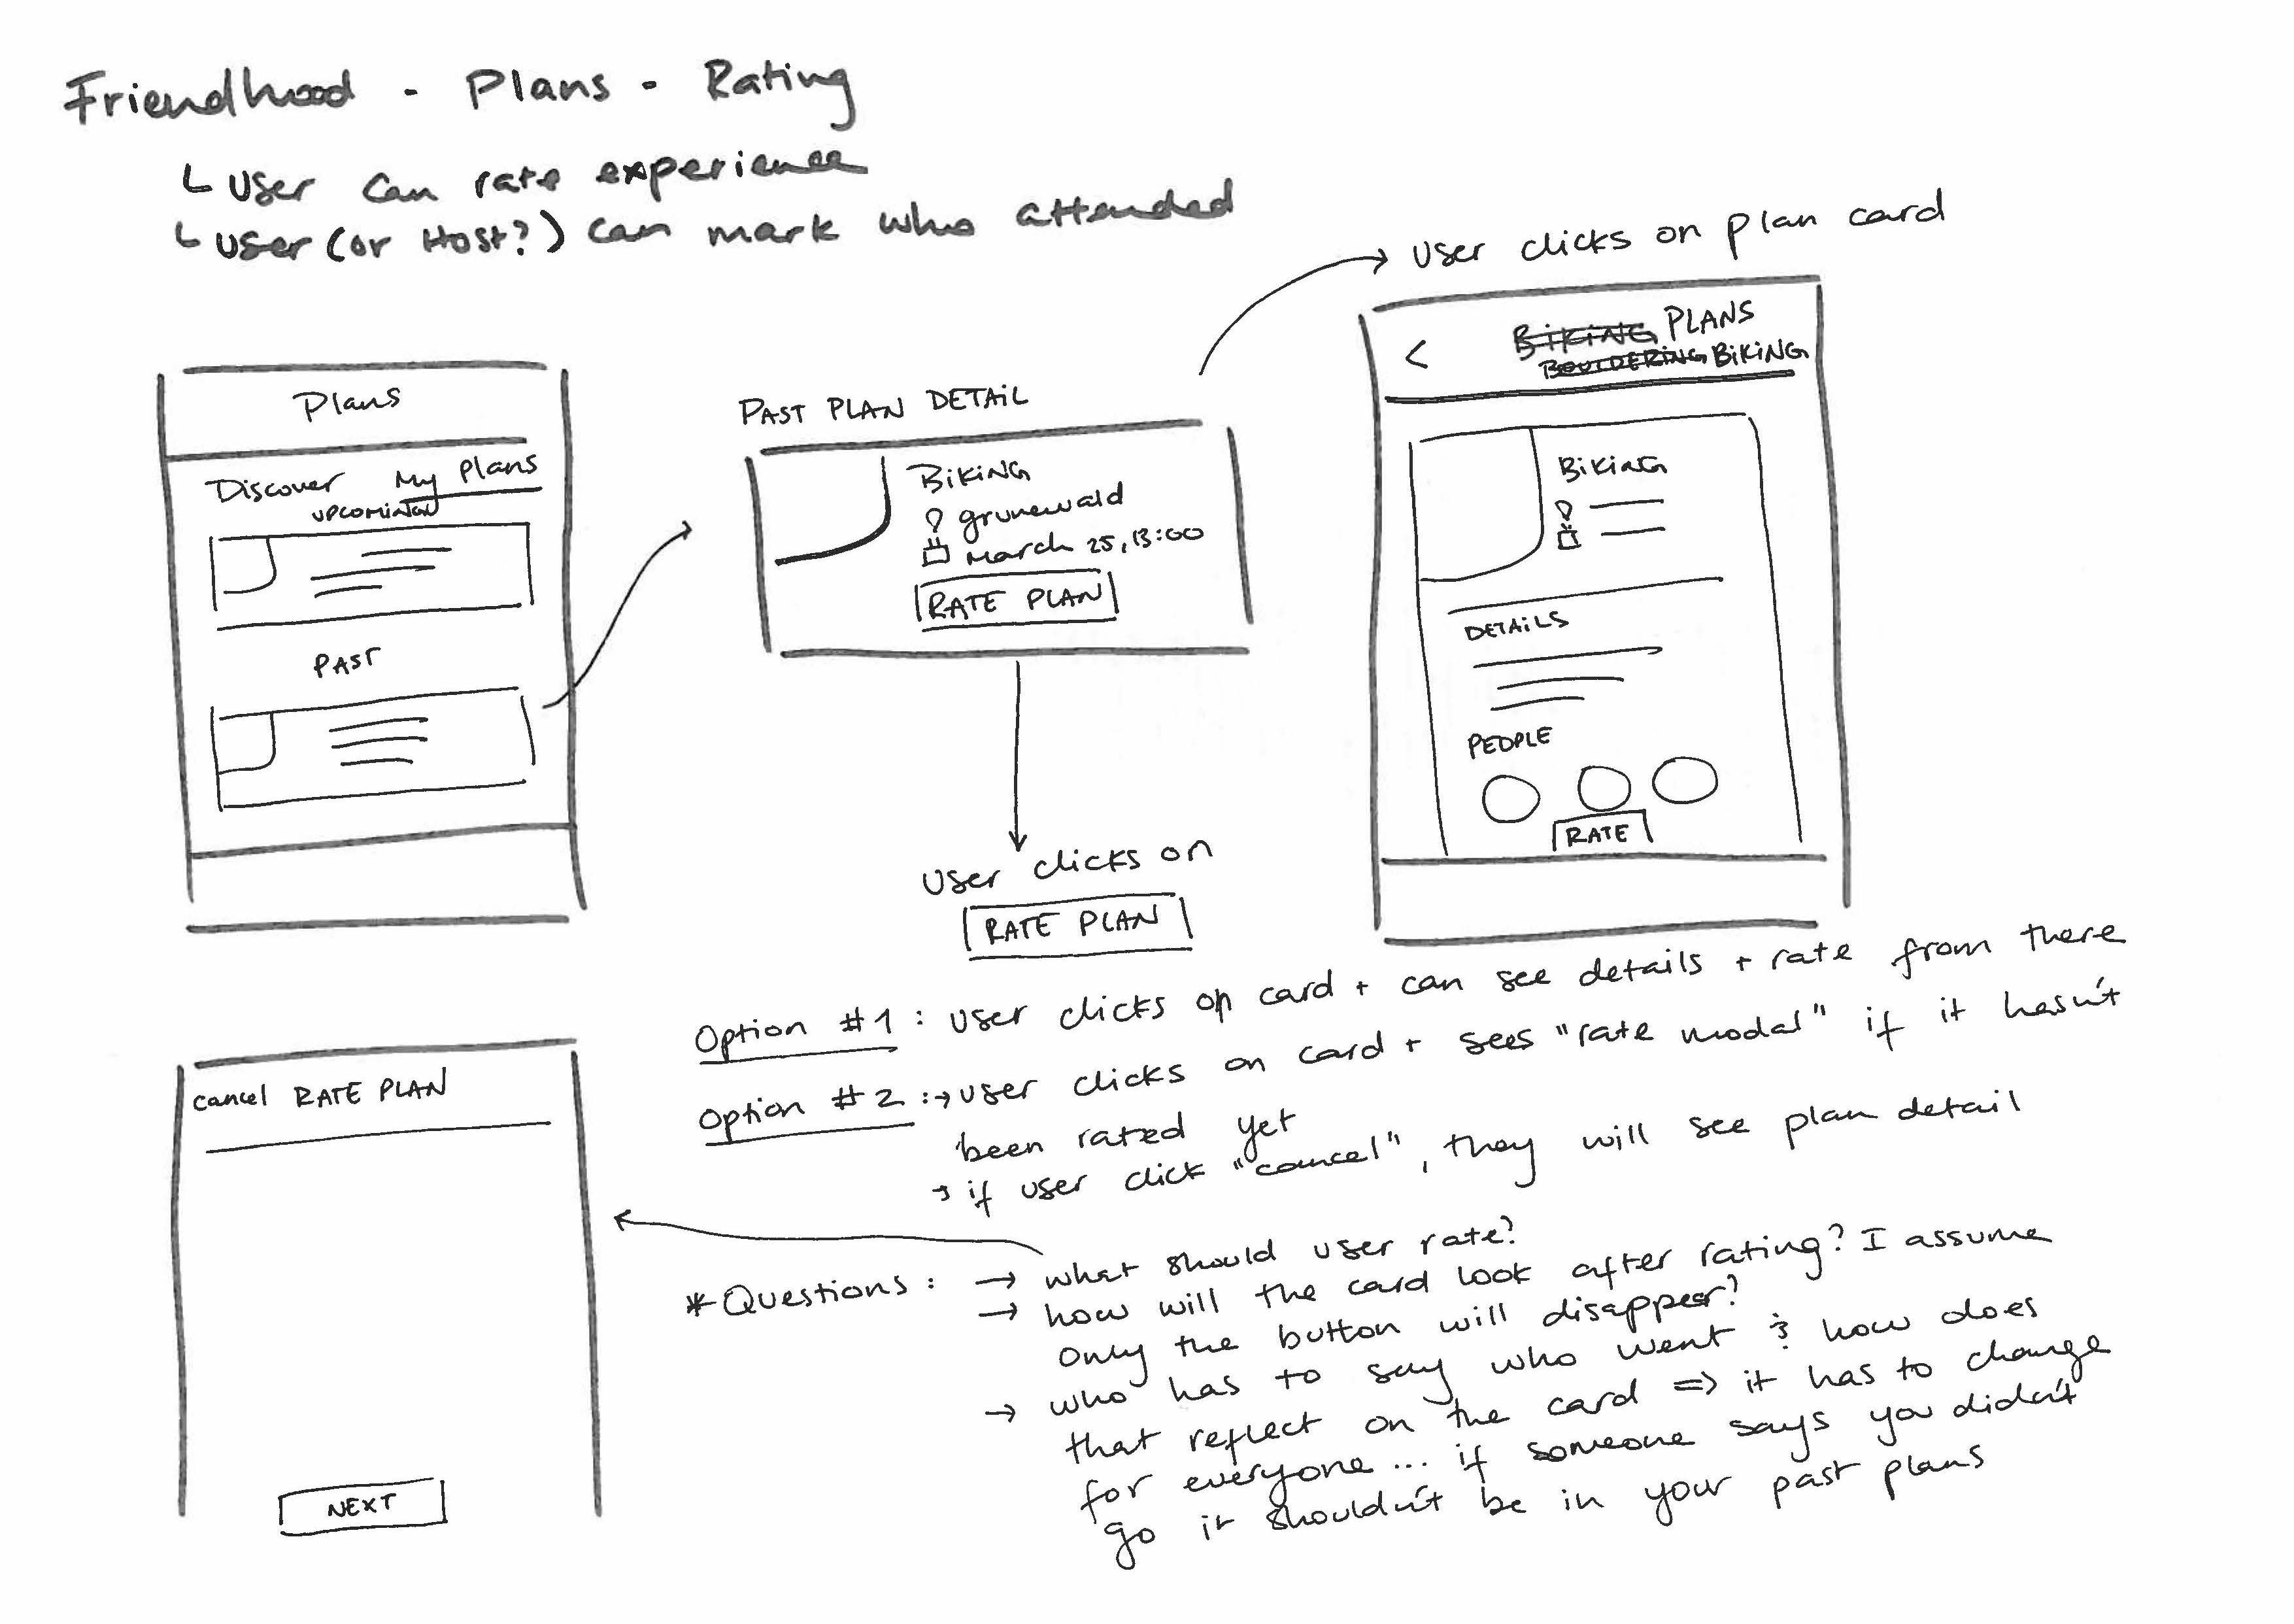 Friendhood - Plans - Rating
User can rate experience
User (or Host?) can mark who attended
User clicks on plan card
Plans
Discover My Plans
UPCOMING
PAST
PAST PLAN DETAIL
BIKING
grunewald
March 25, 13:00
RATE PLAN
User clicks on
RATE PLAN
< BIKING PLANS
BOULDERING BIKING
BIKING
DETAILS
PEOPLE
RATE
Option #1: User clicks on card + can see details + rate from there
Option #2: → User clicks on card + sees "rate modal" if it hasn't
been rated yet
→ if user click "cancel", they will see plan detail
cancel RATE PLAN
NEXT
* Questions: → what should user rate?
→ how will the card look after rating? I assume
only the button will disappear?
→ who has to say who went & how does
that reflect on the card => it has to change
for everyone... if someone says you didn't
go it shouldn't be in your past plans